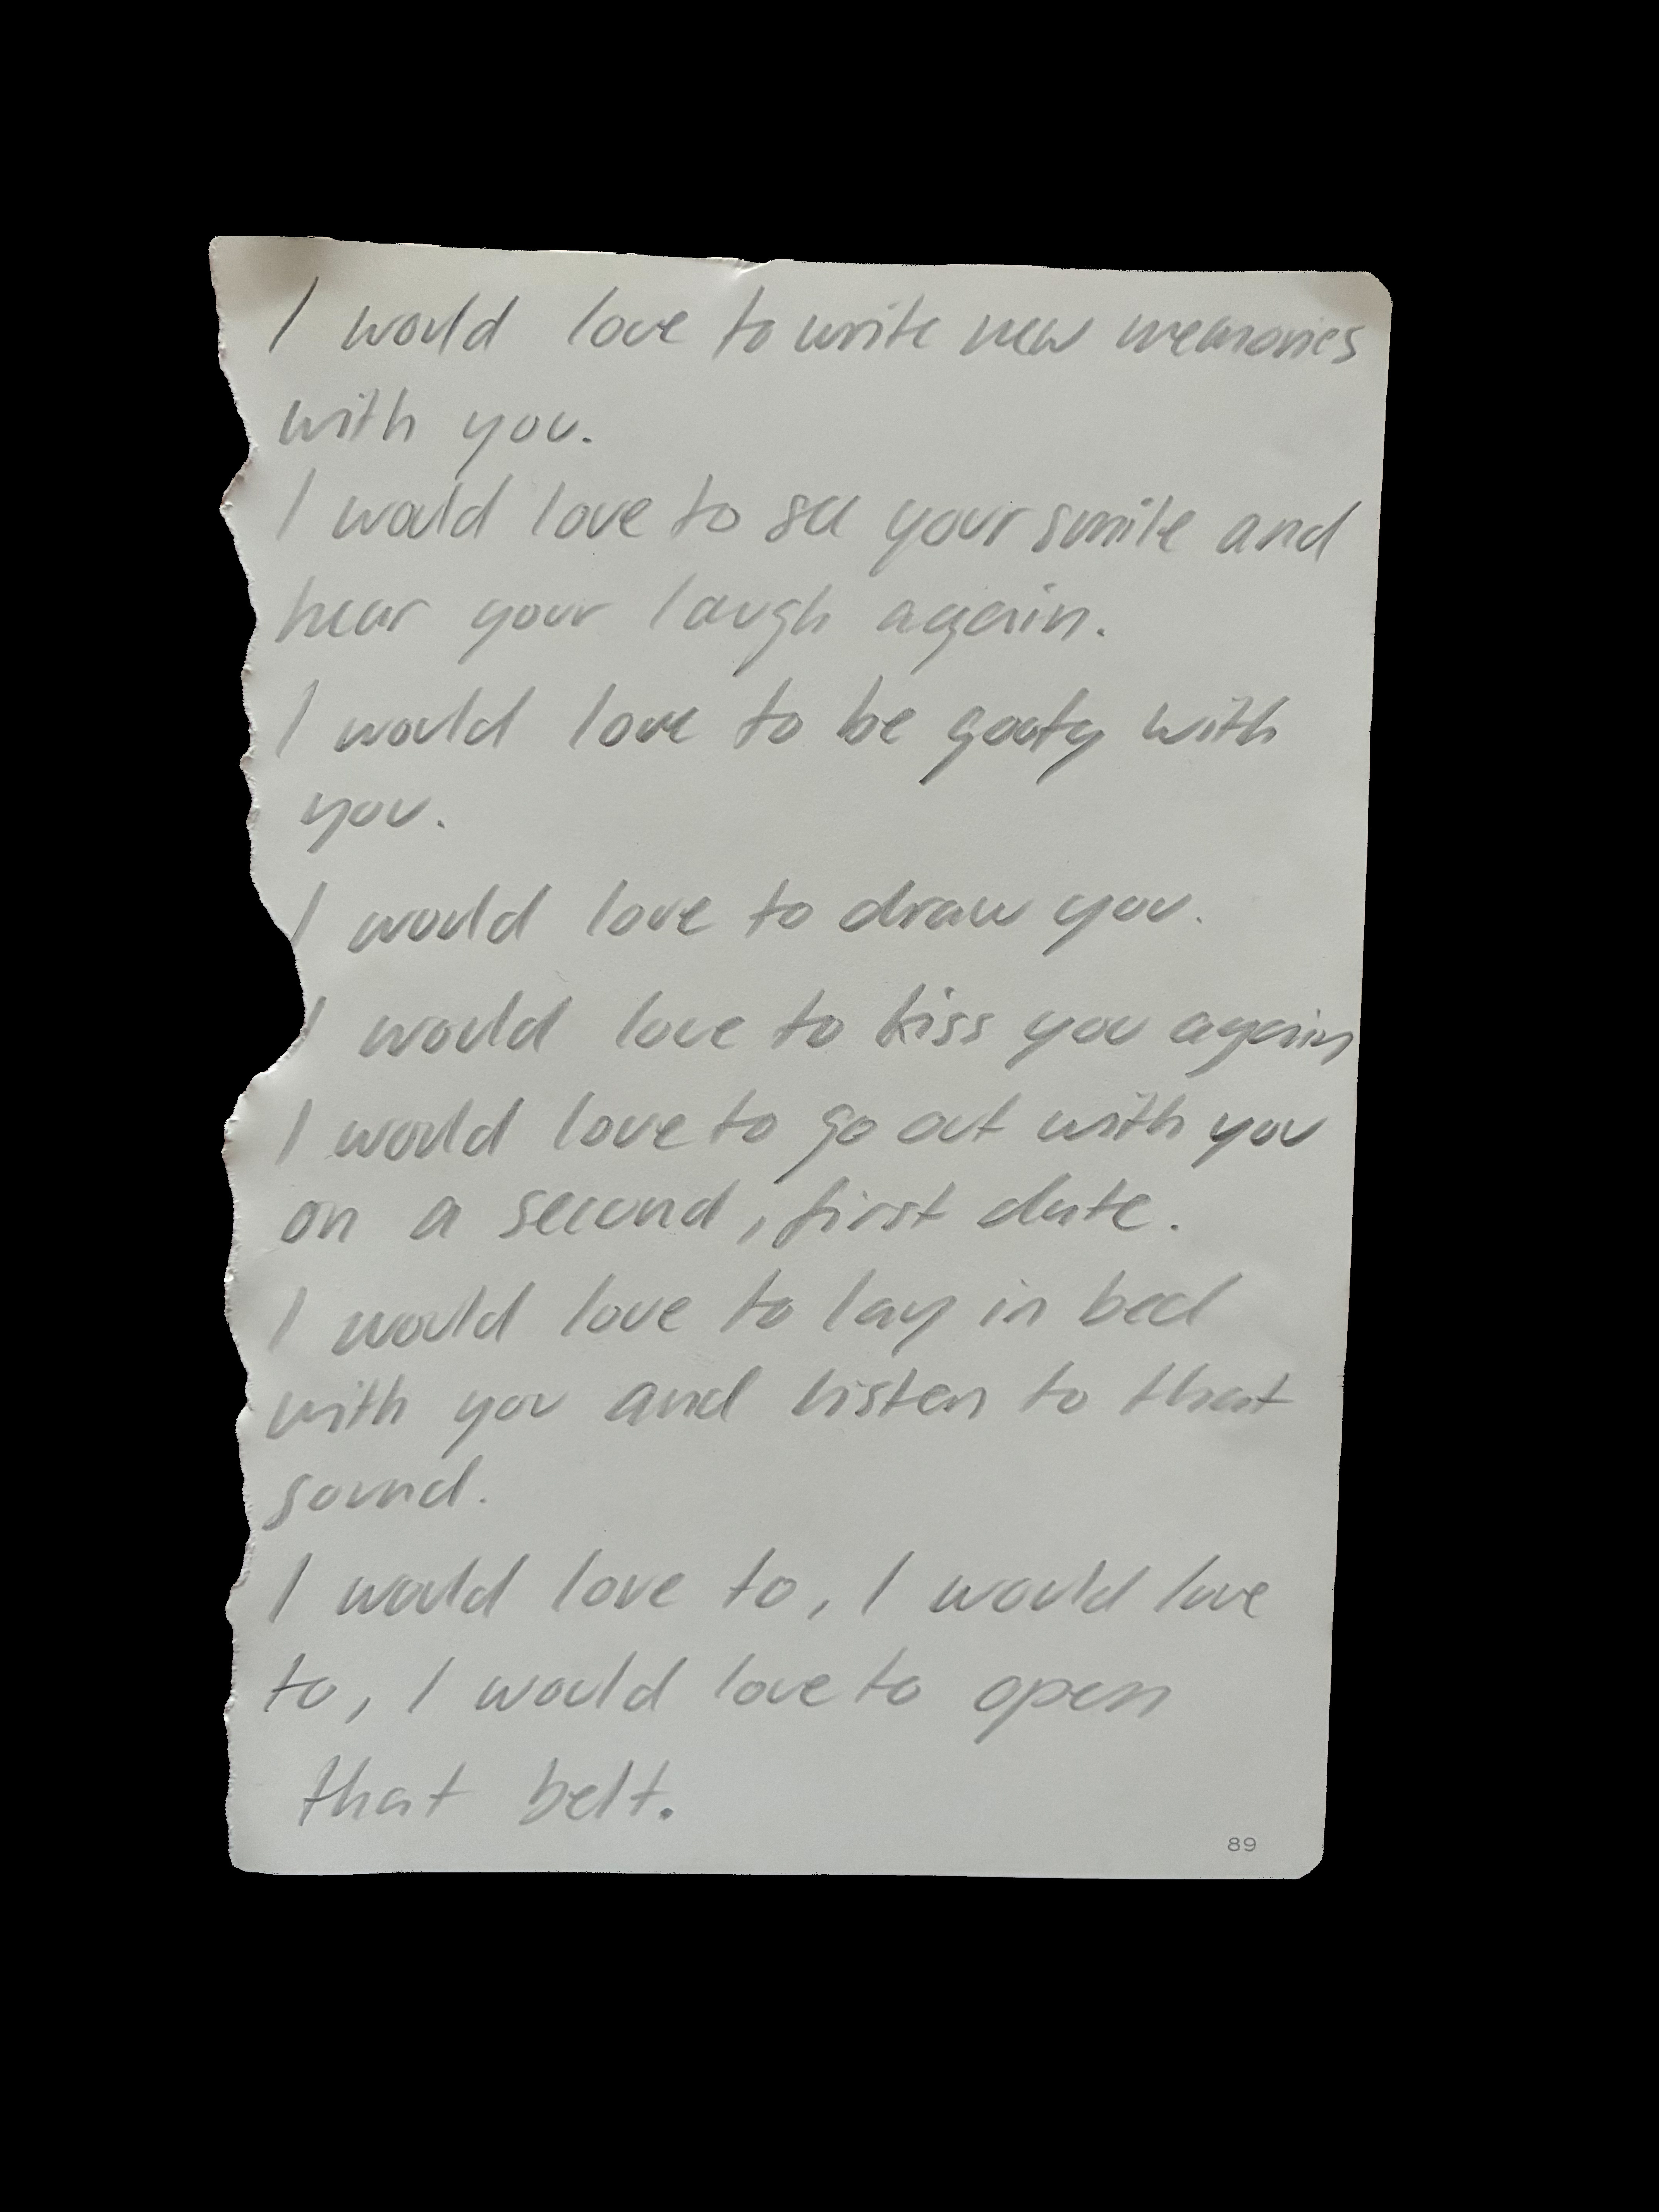 I would love to write new memories
with you.
I would love to see your smile and
hear your laugh again.
I would love to be goofy with
you.
I would love to draw you.
I would love to kiss you again
I would love to go out with you
on a second, first date.
I would love to lay in bed
with you and listen to that
sound.
I would love to, I would love
to, I would love to open
that belt.
89